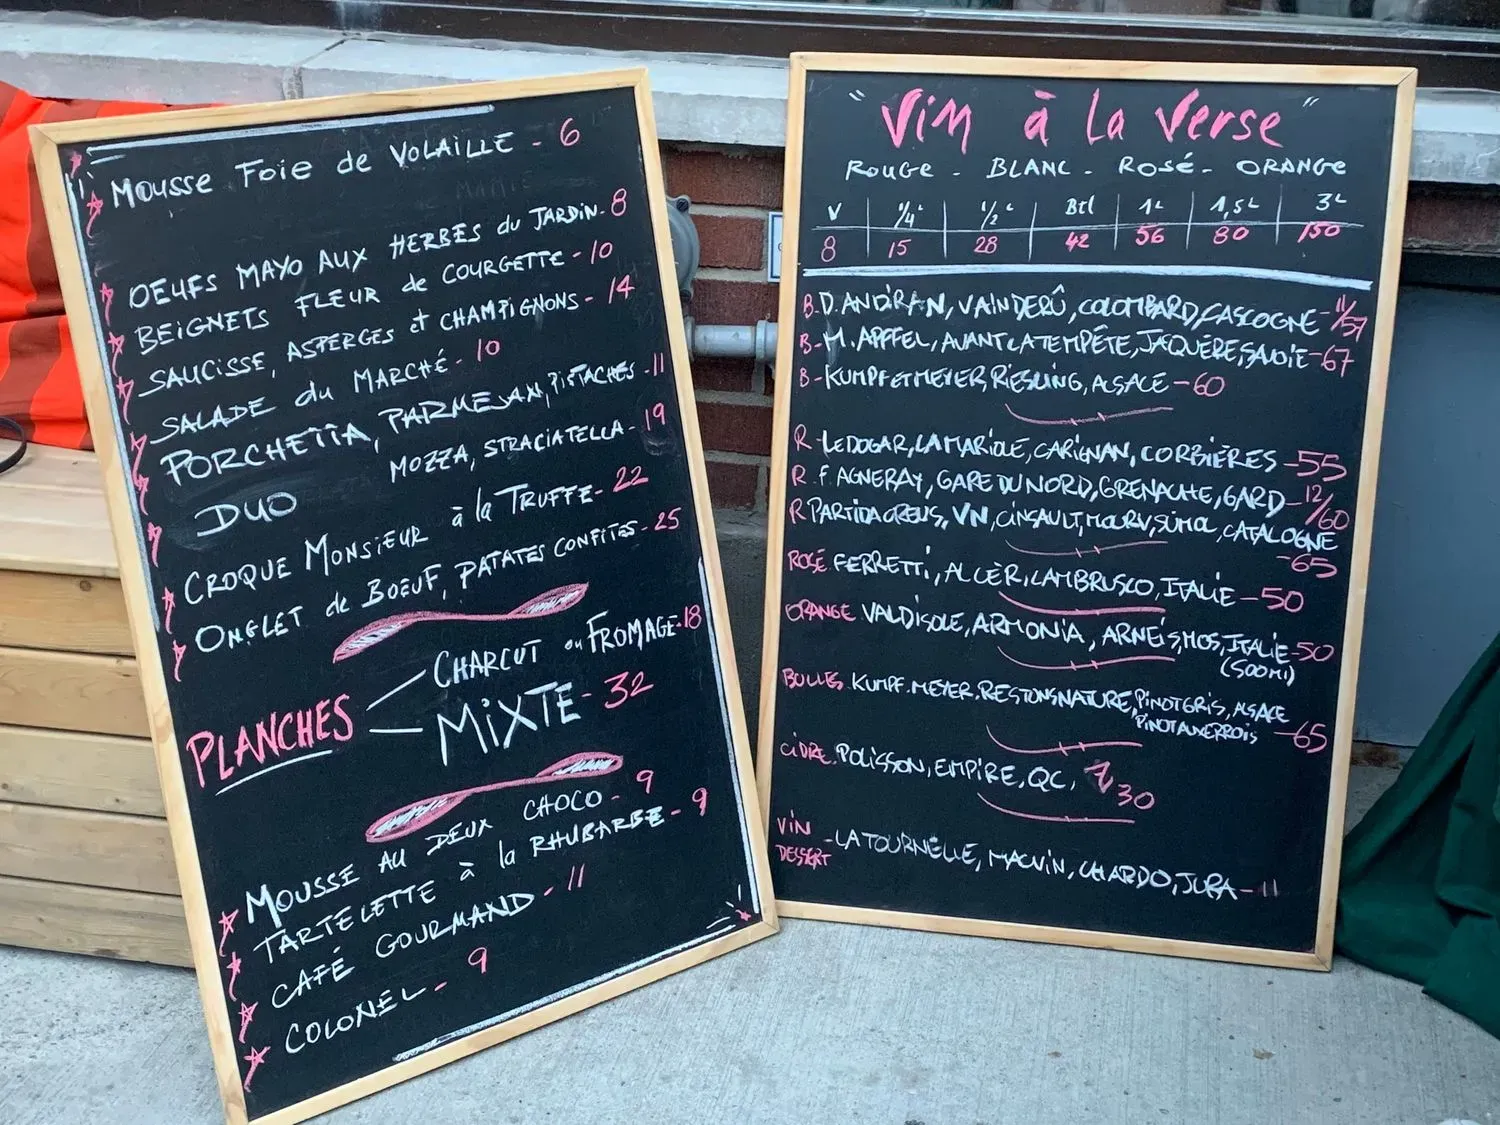 MOUSSE FOIE de VOLAILLE - 6
OEUFS MAYO AUX HERBES du JARDIN - 8
BEIGNETS FLEUR de COURGETTE - 10
SAUCISSE, ASPERGES et CHAMPIGNONS - 14
SALADE du MARCHÉ - 10
PORCHETTA, PARMESAN, PISTACHES - 11
DUO MOZZA, STRACIATELLA - 19
CROQUE MONSIEUR à la TRUFFE - 22
ONGLET de BOEUF, PATATES CONFITES - 25
CHARCUT ou FROMAGE - 18
PLANCHES
MIXTE - 32
MOUSSE AU DEUX CHOCO - 9
TARTELETTE à la RHUBARBE - 9
CAFÉ GOURMAND - 11
COLONEL - 9
"Vin à La Verse"
ROUGE - BLANC - ROSÉ - ORANGE
V 1/4 L 1/2 L Btl 1L 1,5L 3L
8 15 28 42 56 80 150
B. D. ANDIRAN, VAINDERÛ, COLOMBARD, GASCOGNE - 11/57
B - M. APFFEL, AVANT LA TEMPÊTE, JAQUÈRE, SAVOIE - 67
B - KUMPF ET MEYER, RIESLING, ALSACE - 60
R - LEDOGAR, LA MARIOLE, CARIGNAN, CORBIÈRES - 55
R. F. AGNERAY, GARE DU NORD, GRENACHE, GARD - 12/60
R PARTIDA CREUS, VN, CINSAULT, MOURV, SUMOL, CATALOGNE
- 65
ROSÉ FERRETTI, AL CÈR, LAMBRUSCO, ITALIE - 50
ORANGE VALDISOLE, ARMONIA, ARNEIS, MOS, ITALIE - 50
(500ml)
BULLES KUMPF. MEYER. RESTONSNATURE, PINOT GRIS, ALSACE
PINOT AUXERROIS - 65
CIDRE. POLISSON, EMPIRE, QC, 30
VIN
DESSERT - LA TOURNELLE, MACVIN, CHARDO, JURA - 11